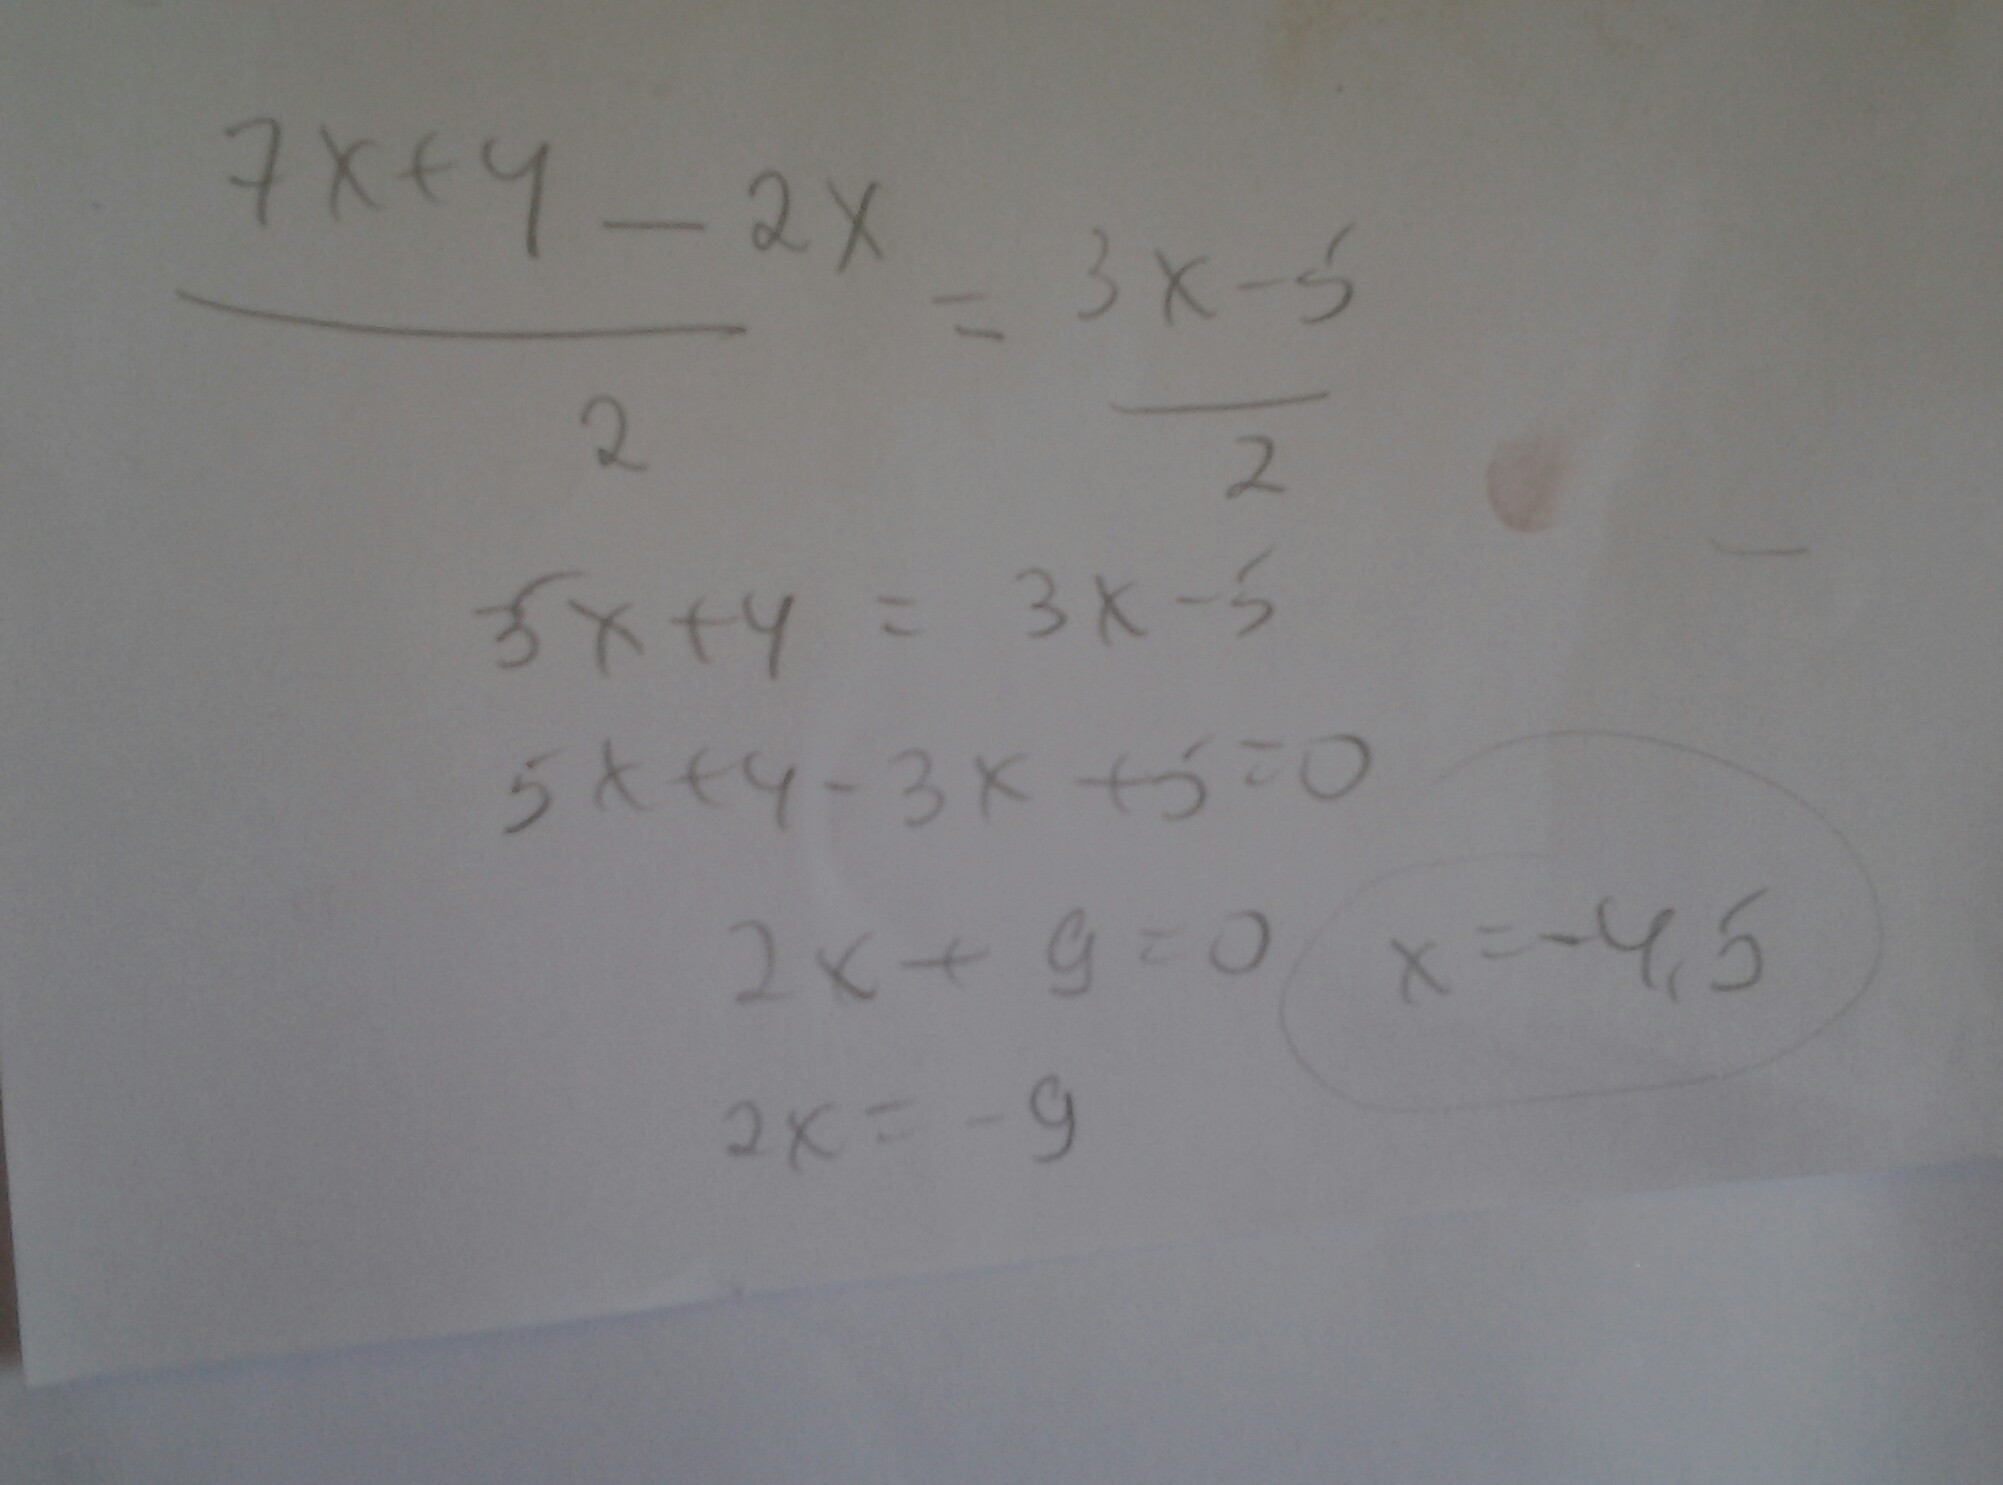 7x+4 - 2x = 3x-5
2 2
5x+4 = 3x-5
5x+4-3x+5=0
2x+9=0 x=-4,5
2x=-9